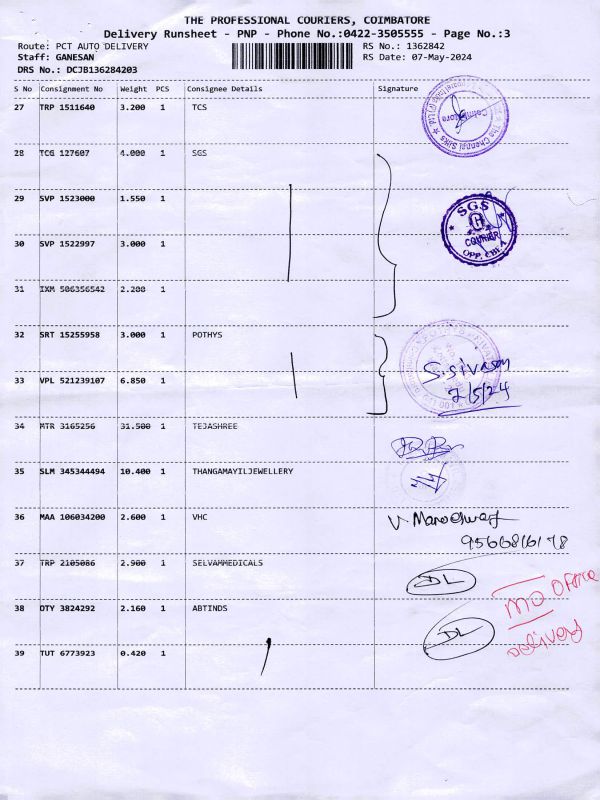 THE PROFESSIONAL COURIERS, COIMBATORE
Delivery Runsheet - PNP - Phone No.:0422-3505555 - Page No.:3
Route: PCT AUTO DELIVERY RS No.: 1362842
Staff: GANESAN RS Date: 07-May-2024
DRS No.: DCJB136284203
S No Consignment No Weight PCS Consignee Details Signature
27 TRP 1511640 3.200 1 TCS
28 TCG 127607 4.000 1 SGS
29 SVP 1523000 1.550 1
SGS
COURIER
OPP. CBE A
30 SVP 1522997 3.000 1
31 IXM 506356542 2.200 1
32 SRT 15255958 3.000 1 POTHYS
S.Sivasam
7/5/24
33 VPL 521239107 6.850 1
34 MTR 3165256 31.500 1 TEJASHREE
35 SLM 345344494 10.400 1 THANGAMAYILJEWELLERY
36 MAA 106034200 2.600 1 VHC
9566816178
37 TRP 2105086 2.900 1 SELVAMMEDICALS
DL
38 OTY 3824292 2.160 1 ABTINDS
DL
MO Office
Delivery
39 TUT 6773923 0.420 1